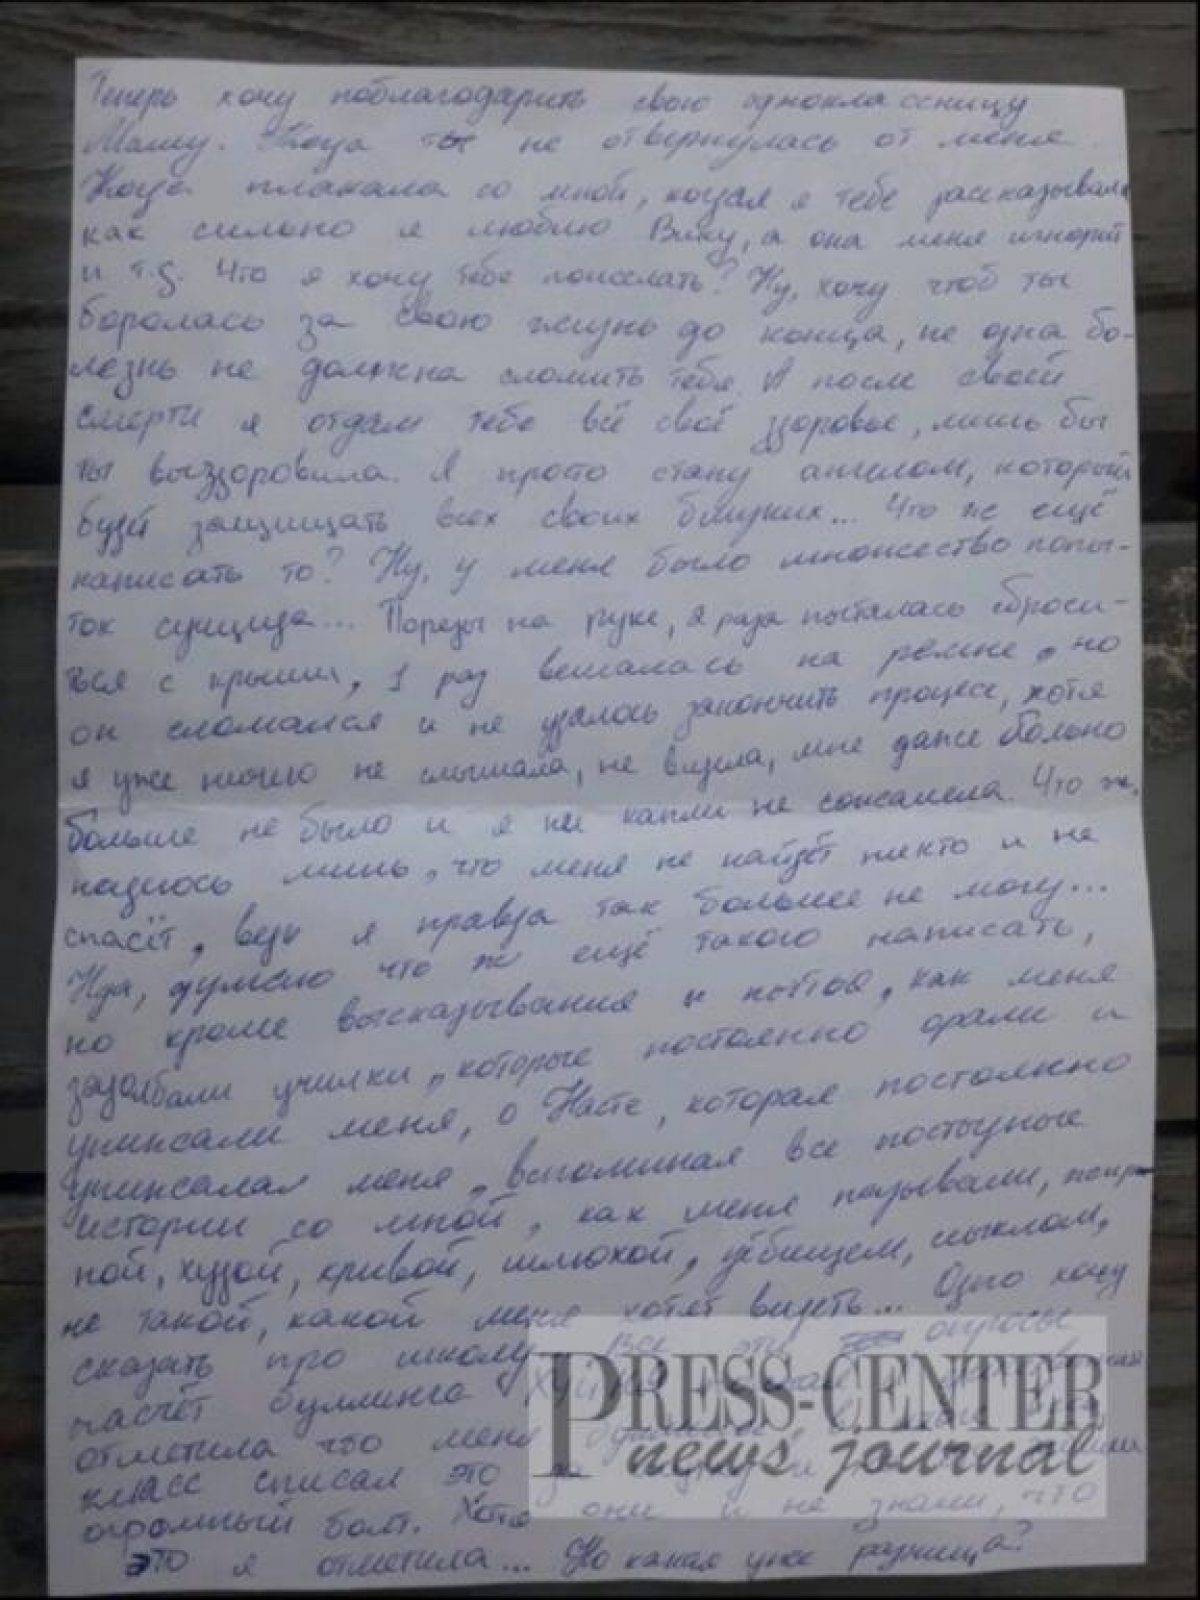 Теперь хочу поблагодарить свою одноклассницу
Машу. Когда ты не отвернулась от меня.
Когда плакала со мной, когда я тебе рассказывала
как сильно я люблю Вику, а она меня игнорит
и т.д. Что я хочу тебе пожелать? Ну, хочу чтоб ты
боролась за свою жизнь до конца, не одна бо-
лезнь не должна сломить тебя. А после своей
смерти я отдам тебе всё своё здоровье, лишь бы
ты выздоровила. Я просто стану ангелом, который
будет защищать всех своих близких... Что же ещё
написать то? Ну, у меня было множество попы-
ток суицида... Порезы на руке, я раза пыталась сброси-
ться с крыши, 1 раз вешалась на ремне, но
он сломался и не удалось закончить процесс, хотя
я уже ничего не слышала, не видела, мне даже больно
больше не было и я ни капли не сожалела. Что ж,
надеюсь лишь, что меня не найдёт никто и не
спасёт, ведь я правда так больше не могу...
Нда, думаю что ж ещё такого написать,
но кроме высказывания и, как меня
задолбали училки, которые постоянно орали и
унижали меня, о Насте, которая постоянно
унижала меня, вспоминая все постыдные
истории со мной, как меня называли,
ной, худой, кривой, шлюхой, уёбищем,
не такой, какой меня хотят видеть... Одно хочу
сказать про школу, Все эти опросы
насчёт буллинга
отметила что меня
класс списал это
огромный болт. Хотя они и не знали, что
это я отметила... Но какая уже разница?
PRESS-CENTER
news journal